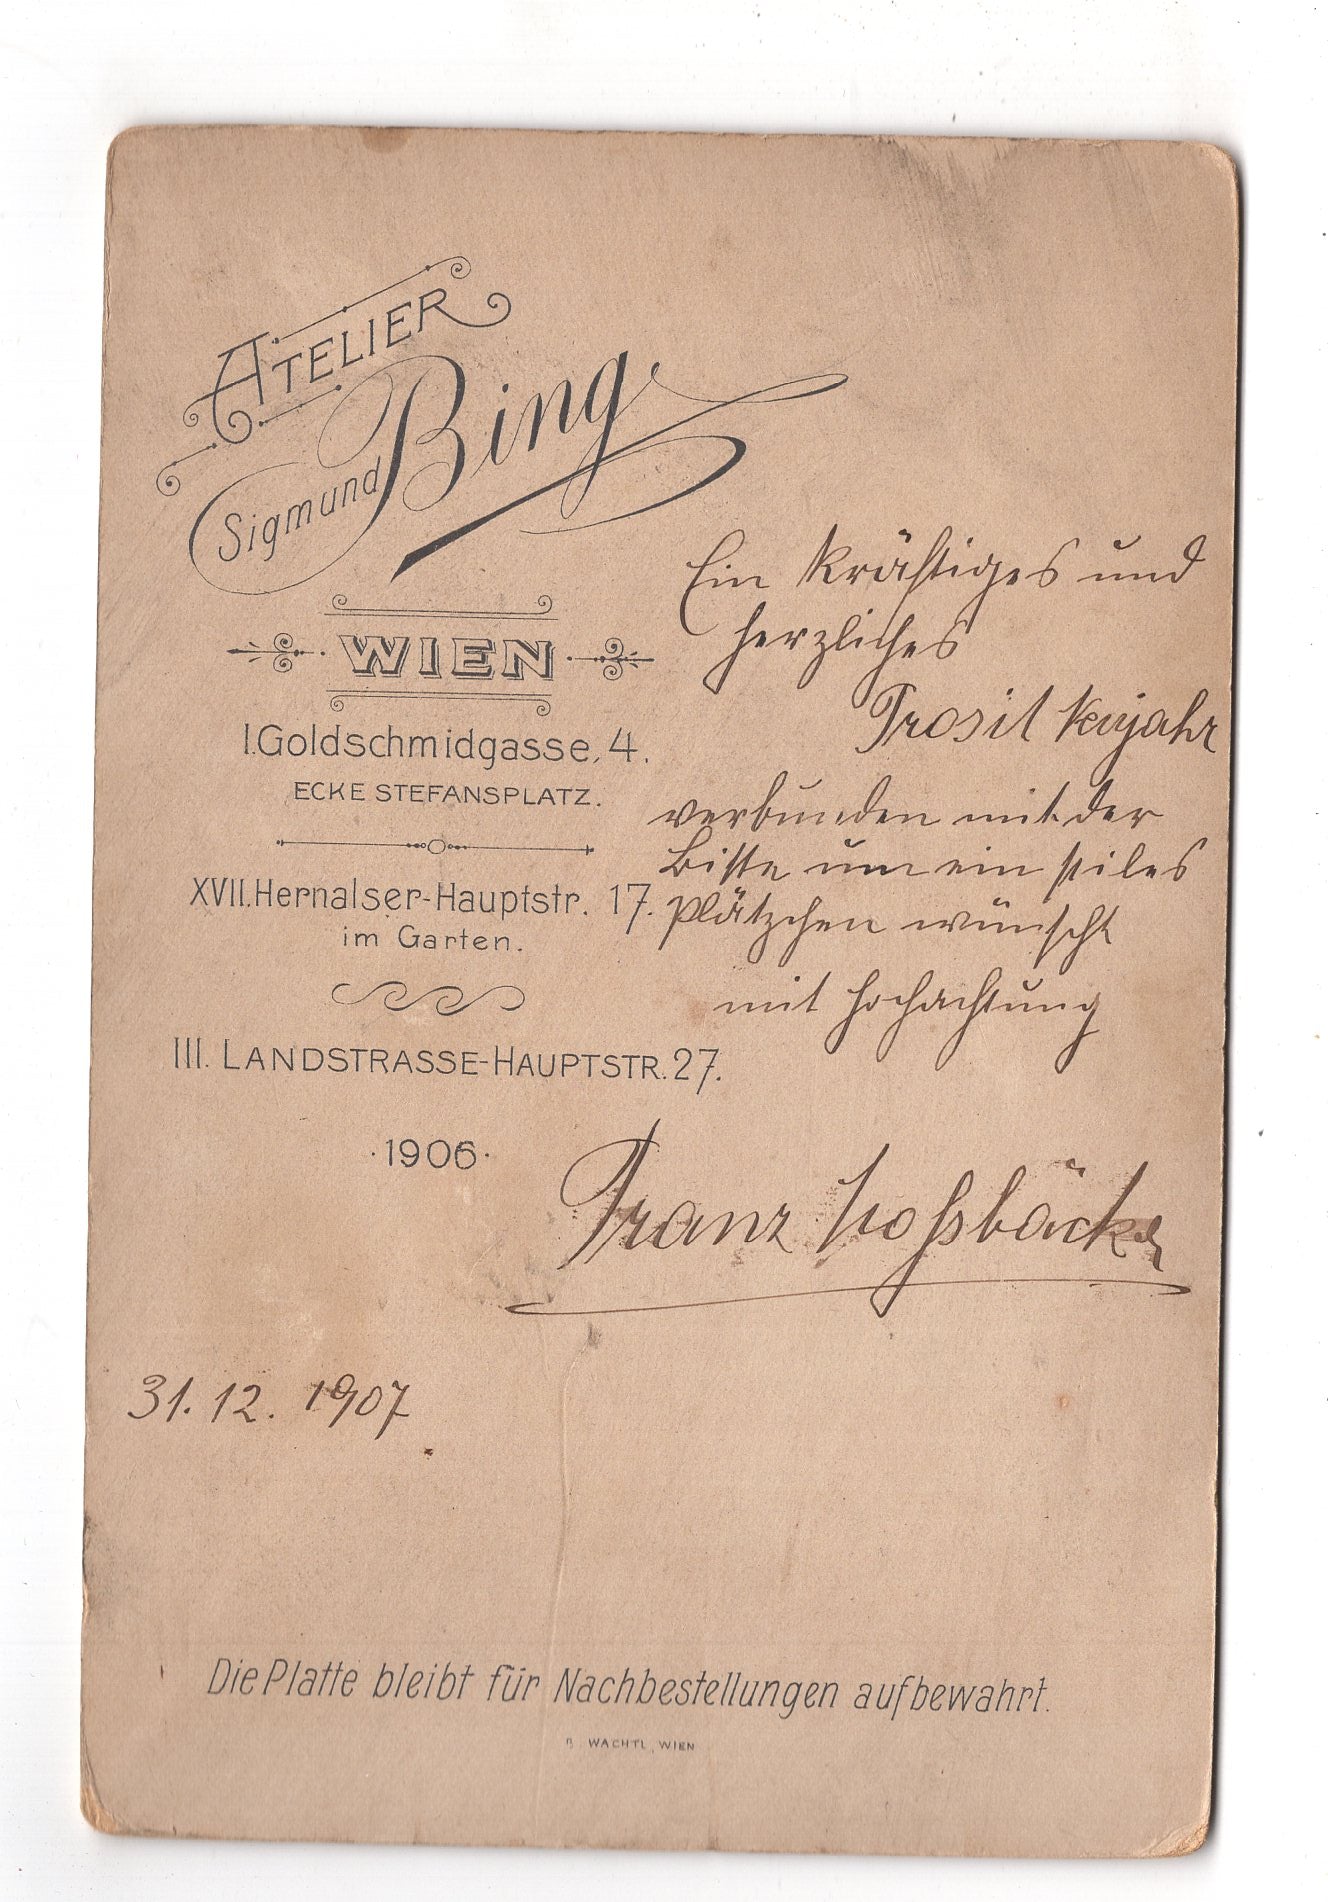 ATELIER
Sigmund Bing
WIEN
I. Goldschmidgasse, 4.
ECKE STEFANSPLATZ.
XVII. Hernalser-Hauptstr. 17.
im Garten.
III. LANDSTRASSE-HAUPTSTR. 27.
·1906·
Ein kräftiges und
herzliches
Prosit Neujahr
verbunden mit der
Bitte um ein stiles
Plätzchen wünscht
mit Hochachtung
Franz
31. 12. 1907
Die Platte bleibt für Nachbestellungen aufbewahrt.
B. WACHTL, WIEN